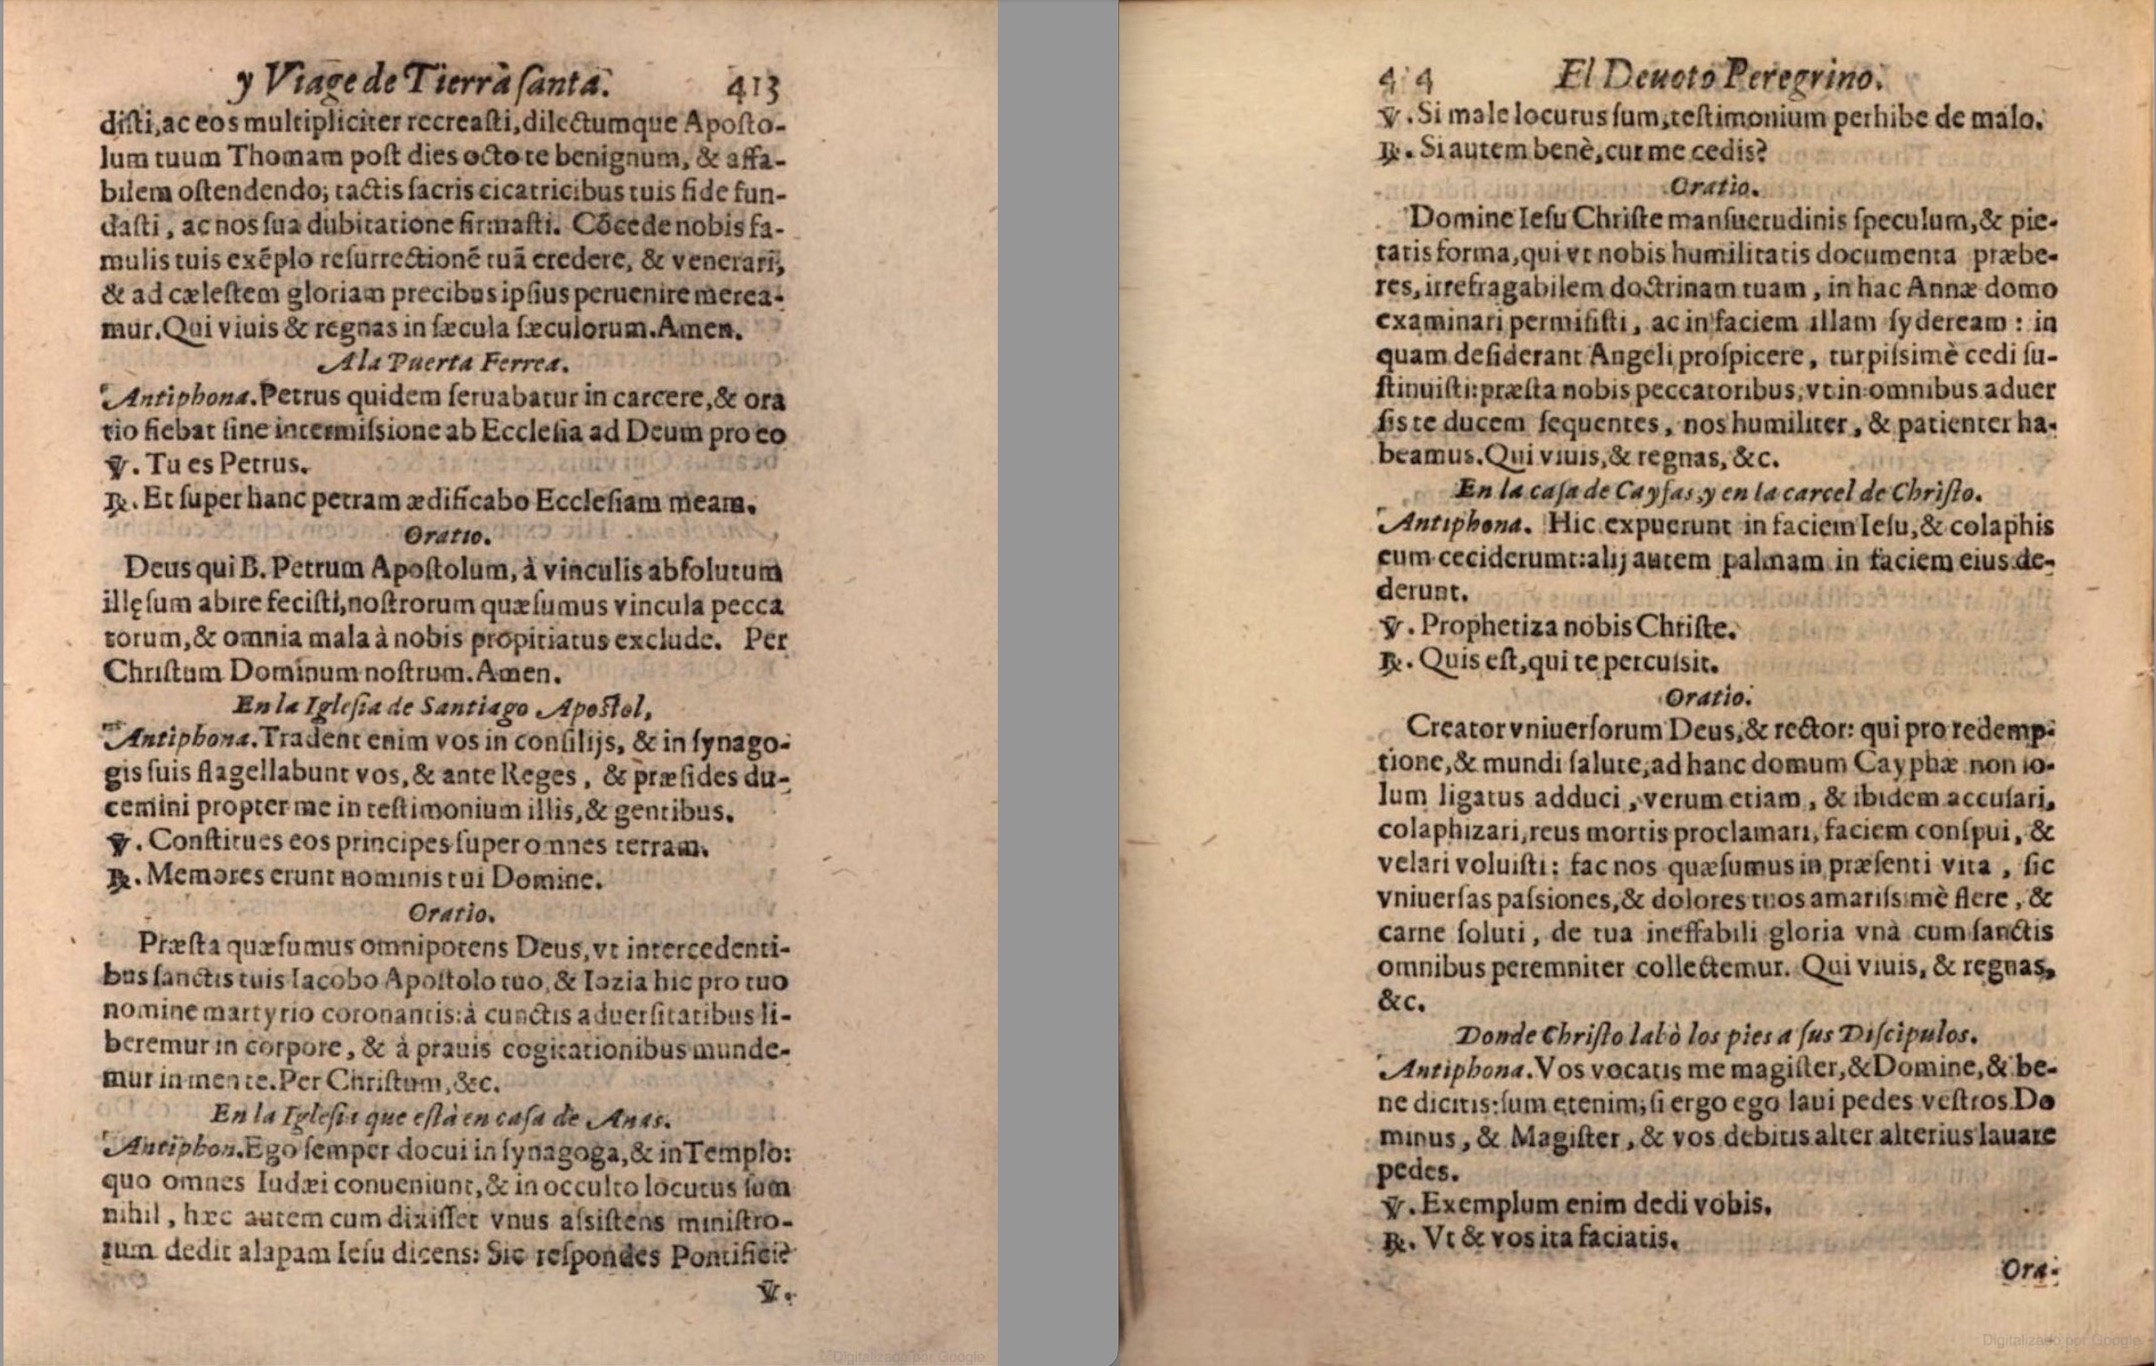 y Viage de Tierra ſanta. 413
diſti, ac eos multipliciter recreaſti, dilectumque Apoſto-
lum tuum Thomam poſt dies octo te benignum, & affa-
bilem oſtendendo; tactis ſacris cicatricibus tuis fide fun-
daſti, ac nos ſua dubitatione firmaſti. Cõcede nobis fa-
mulis tuis exẽplo reſurrectionẽ tuã credere, & venerari,
& ad cæleſtem gloriam precibus ipſius peruenire merea-
mur. Qui viuis & regnas in ſæcula ſæculorum. Amen.
A la Puerta Ferrea.
Antiphona. Petrus quidem ſeruabatur in carcere, & ora
tio fiebat ſine intermiſsione ab Eccleſia ad Deum pro eo
℣. Tu es Petrus.
℞. Et ſuper hanc petram ædificabo Eccleſiam meam.
Oratio.
Deus qui B. Petrum Apoſtolum, à vinculis abſolutum
illęſum abire feciſti, noſtrorum quæſumus vincula pecca
torum, & omnia mala à nobis propitiatus exclude. Per
Chriſtum Dominum noſtrum. Amen.
En la Igleſia de Santiago Apoſtol,
Antiphona. Tradent enim vos in conſilijs, & in ſynago-
gis ſuis flagellabunt vos, & ante Reges, & præſides du-
cemini propter me in teſtimonium illis, & gentibus.
℣. Conſtitues eos principes ſuper omnes terram.
℞. Memores erunt nominis tui Domine.
Oratio.
Præſta quæſumus omnipotens Deus, vt intercedenti-
bus ſanctis tuis Iacobo Apoſtolo tuo, & Iozia hic pro tuo
nomine martyrio coronantis: à cunctis aduerſitatibus li-
beremur in corpore, & à prauis cogitationibus munde-
mur in mente. Per Chriſtum, &c.
En la Igleſia que eſtà en caſa de Anas.
Antiphon. Ego ſemper docui in ſynagoga, & in Templo:
quo omnes Iudæi conueniunt, & in occulto locutus ſum
nihil, hæc autem cum dixiſſet vnus aſsiſtens miniſtro-
rum dedit alapam Ieſu dicens: Sic reſpondes Pontifici?
℣.
4 4 El Deuoto Peregrino.
℣. Si male locutus ſum, teſtimonium perhibe de malo.
℞. Si autem benè, cur me cedis?
Oratio.
Domine Ieſu Chriſte manſuetudinis ſpeculum, & pie-
tatis forma, qui vt nobis humilitatis documenta præbe-
res, irrefragabilem doctrinam tuam, in hac Annæ domo
examinari permiſiſti, ac in faciem illam ſydeream: in
quam deſiderant Angeli proſpicere, turpiſsimè cedi ſu-
ſtinuiſti: præſta nobis peccatoribus, vt in omnibus aduer
ſis te ducem ſequentes, nos humiliter, & patienter ha-
beamus. Qui viuis, & regnas, &c.
En la caſa de Cayfas, y en la carcel de Chriſto.
Antiphona. Hic expuerunt in faciem Ieſu, & colaphis
eum ceciderumt: alij autem palmam in faciem eius de-
derunt.
℣. Prophetiza nobis Chriſte.
℞. Quis eſt, qui te percuſsit.
Oratio.
Creator vniuerſorum Deus, & rector: qui pro redemp-
tione, & mundi ſalute, ad hanc domum Cayphæ non ſo-
lum ligatus adduci, verum etiam, & ibidem accuſari,
colaphizari, reus mortis proclamari, faciem conſpui, &
velari voluiſti: fac nos quæſumus in præſenti vita, ſic
vniuerſas paſsiones, & dolores tuos amariſsimè flere, &
carne ſoluti, de tua ineffabili gloria vnà cum ſanctis
omnibus peremniter collectemur. Qui viuis, & regnas,
&c.
Donde Chriſto labò los pies a ſus Diſcipulos.
Antiphona. Vos vocatis me magiſter, & Domine, & be-
ne dicitis: ſum etenim, ſi ergo ego laui pedes veſtros Do
minus, & Magiſter, & vos debitis alter alterius lauare
pedes.
℣. Exemplum enim dedi vobis.
℞. Vt & vos ita faciatis.
Ora-
Digitalizado por Google
Digitalizado por Google